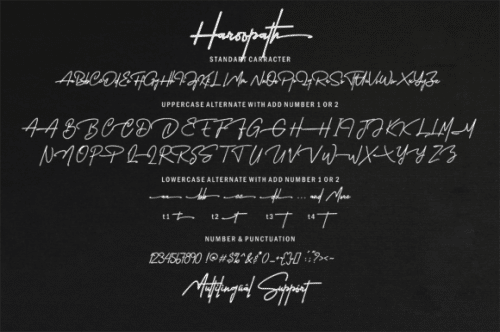 Haroopath
STANDART CARRACTER
AaBbCcDdEeFfGgHhIiJjKkLlMm NnOoPpQqRrSsTtUuVvWwXxYyZz
UPPERCASE ALTERNATE WITH ADD NUMBER 1 OR 2
A A B B C C D D E E F F G G H H I I J J K K L L M M
N N O O P P Q Q R R S S T T U U V V W W X X Y Y Z Z
LOWERCASE ALTERNATE WITH ADD NUMBER 1 OR 2
aa bb cc dd ... and More
t1 t t2 t t3 t t4 t
NUMBER & PUNCTUATION
1234567890
Multilingual Support